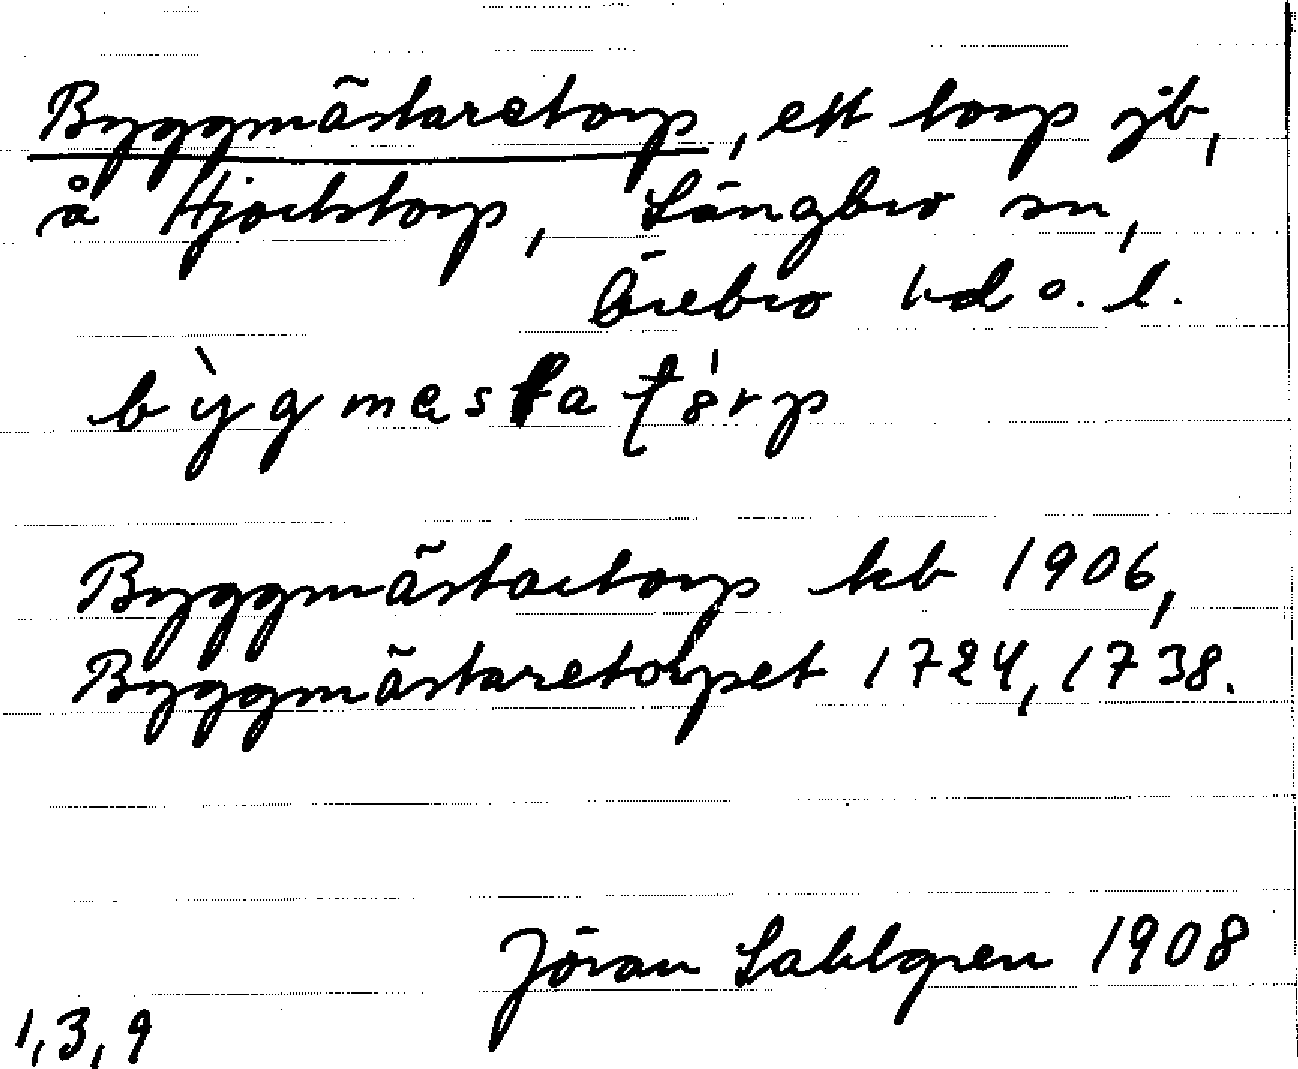 Byggmästaretorp, ett torp jb,
å Hjortstorp, Längbro sn,
Örebro hd o. l.
bỳgmesta t8́rp
Byggmästartorp kb 1906,
Byggmästaretorpet 1724, 1738.
Jöran Sahlgren 1908
1, 3, 9